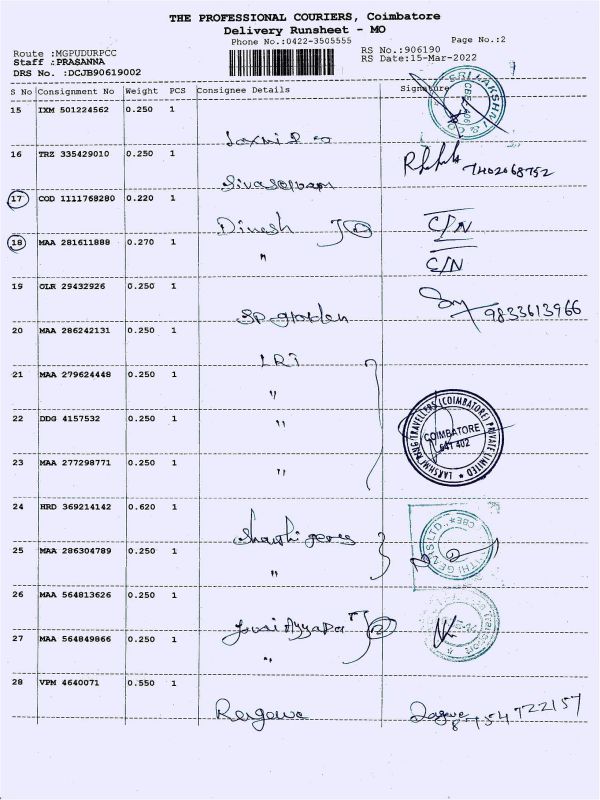 THE PROFESSIONAL COURIERS, Coimbatore
Delivery Runsheet - MO
Phone No.:0422-3505555
Page No.:2
Route :MGPUDURPCC
RS No.:906190
Staff :PRASANNA
RS Date:15-Mar-2022
DRS No. :DCJB90619002
S No Consignment No Weight PCS Consignee Details Signature
15 IXM 501224562 0.250 1
16 TRZ 335429010 0.250 1
7402068752
17 COD 1111768280 0.220 1
Dinesh C/N
18 MAA 281611888 0.270 1
" C/N
19 OLR 29432926 0.250 1
SP garden 9833613966
20 MAA 286242131 0.250 1
LRT
21 MAA 279624448 0.250 1
"
22 DDG 4157532 0.250 1
"
LAKSHMI RING TRAVELLERS (COIMBATORE) PRIVATE LIMITED
COIMBATORE
641 402
23 MAA 277298771 0.250 1
"
24 HRD 369214142 0.620 1
25 MAA 286304789 0.250 1
"
26 MAA 564813626 0.250 1
27 MAA 564849866 0.250 1
"
28 VPM 4640071 0.550 1
8754722157